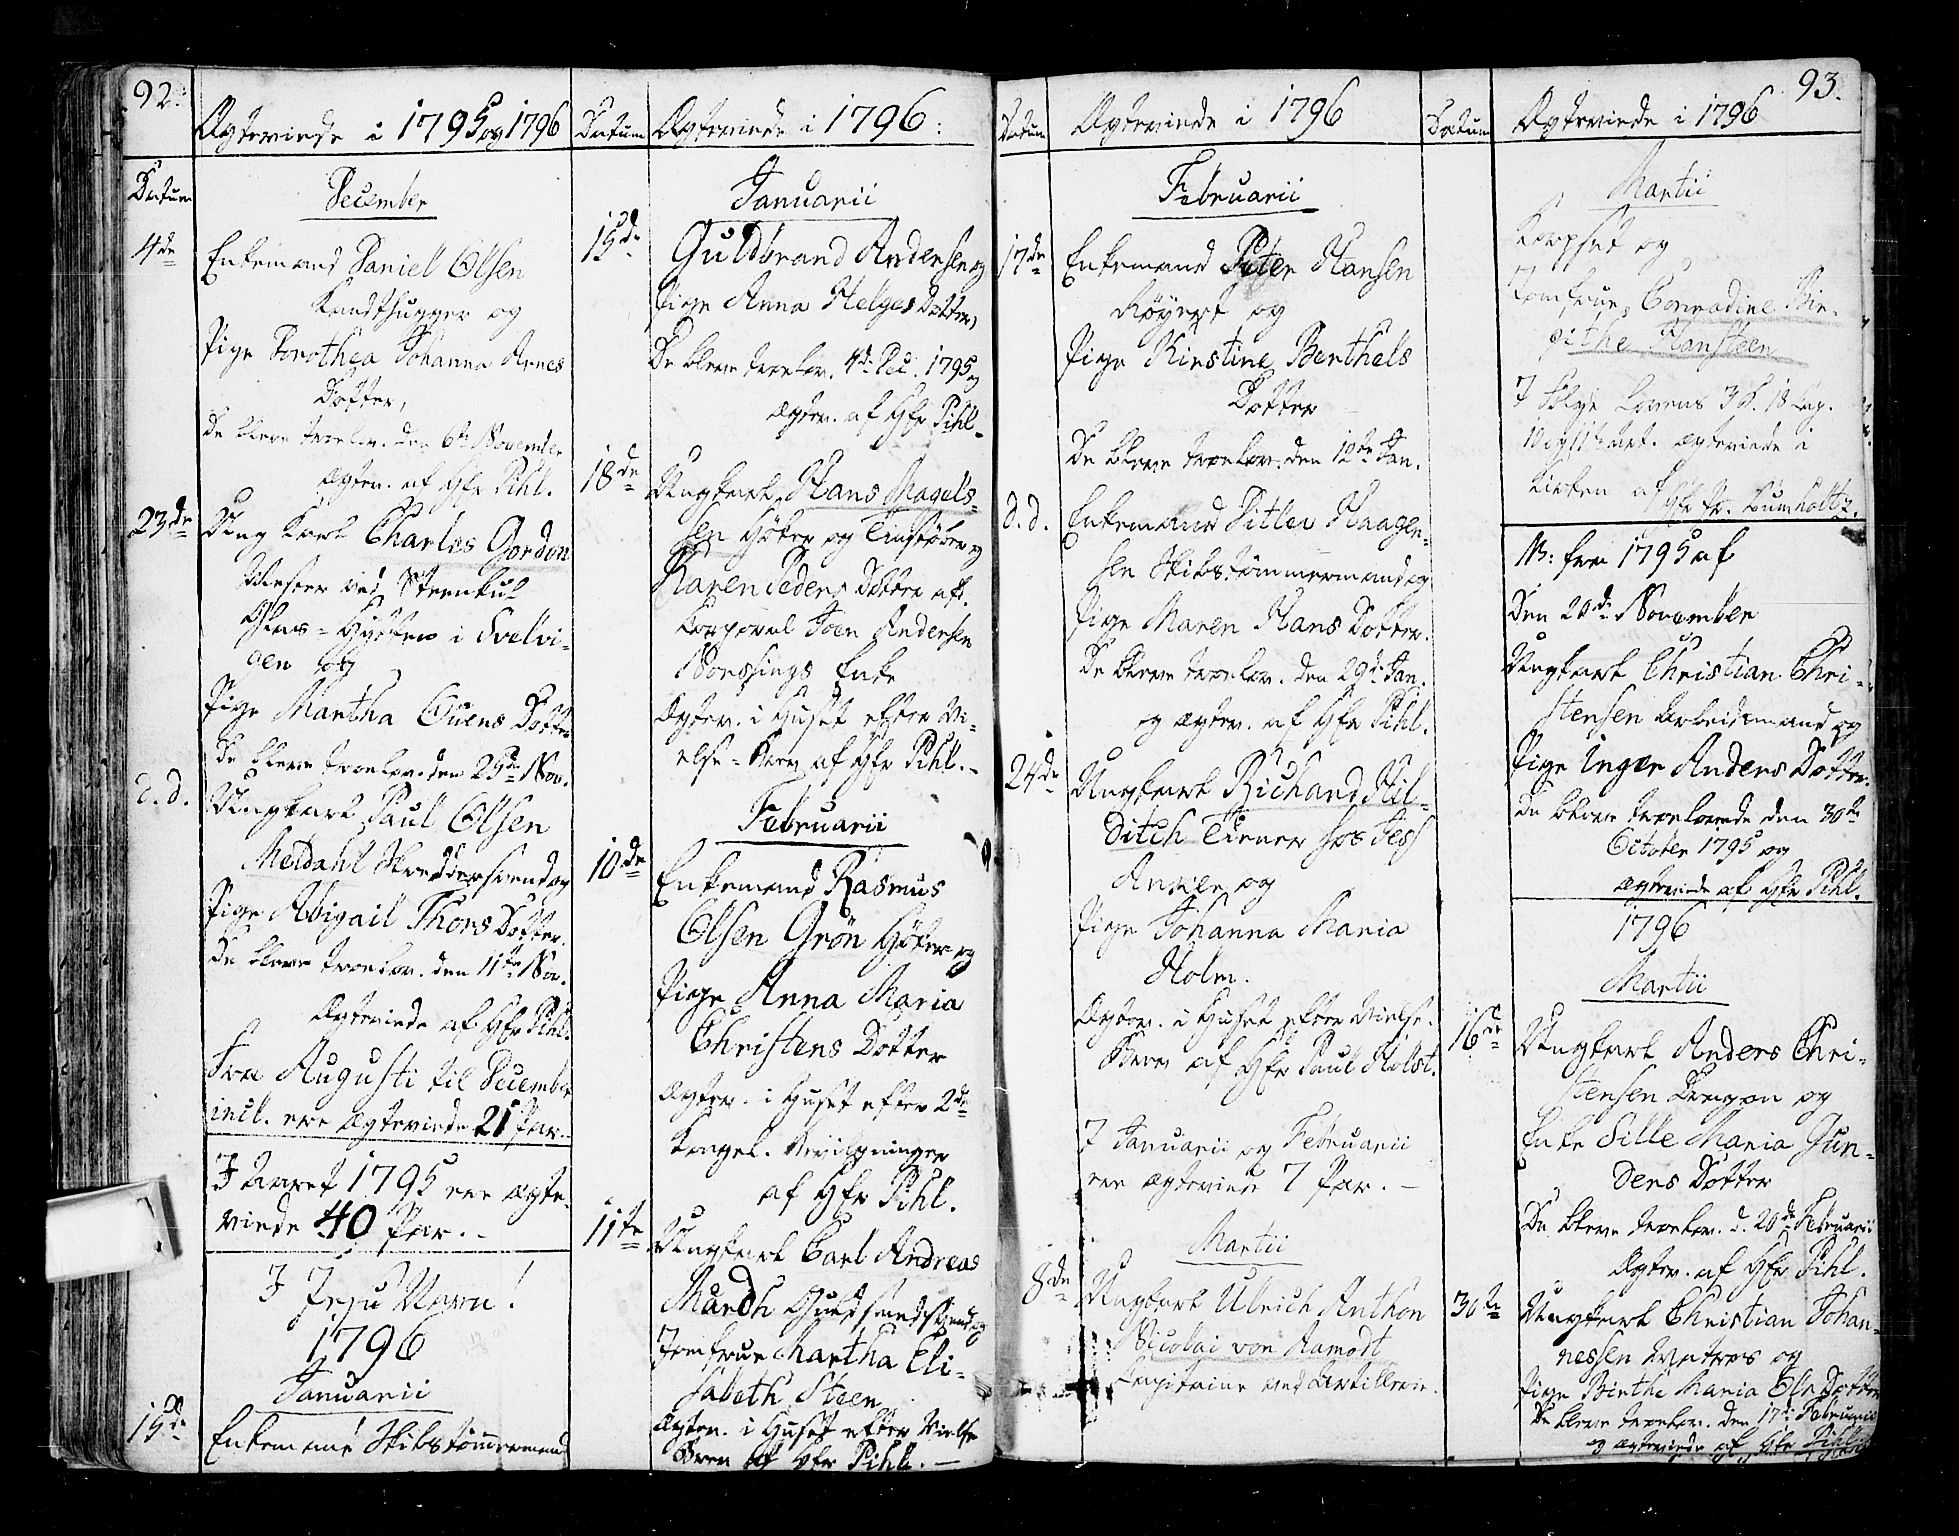 92.
Ægteviede i 1795 og 1796
Datum
December
4de
Enkemand Daniel Olsen
Kandthugger og
Pige Dorothea Johanna Arnes
Dotter,
De bleve trolov. den 6te November
ægtev. af Hr Pihl.
23de
Ung Karl Charles Gordon
Mester ved Steenkul
Glas-Hytten i Svelvi-
gen og
Pige Martha Ouens Dotter
De bleve trolov. den 25de Nov.
d. d.
Ungkarl Paul Olsen
Meldahl Skreddersvend og
Pige Abigail Thors Dotter.
De bleve trolov. den 11te Nov.
Ægteviede af Hr Pihl.
Fra Augusti til December
incl. ere Ægteviede 21 Par.
I Aaret 1795 ere ægte-
viede 40 Par.
I Jesu Navn!
1796
Januarii
15de
Enkemand Skibstømmermand
Datum
Ægteviede i 1796:
Januarii
15de
Guldbrand Andersen og
Pige Anna Helges Dotter,
De bleve trolov. 4de Dec. 1795 og
ægtev. af Hr Pihl.
18de
Ungkarl Hans Magels-
sen Høker og Tingstører og
Karen Peders Dotter afg.
Corporal Joen Andersen
Enke
Ægtev. i Huset efter Vi-
else-Brev af Hr Pihl.
Februarii
10de
Enkemand Rasmus
Olsen Grön Høker og
Pige Anna Maria
Christens Dotter
Ægtev. i Huset efter 2de
Kongel. Bevilgninger
af Hr Pihl.
11te
Ungkarl Carl Andreas
Mardh Guldsmedsvend og
Jomfrue Martha Eli-
sabeth Steen
Ægtev. i Huset efter Vielse
Brev af Hr Pihl.
Datum
Ægteviede i 1796
Februarii
17de
Enkemand Peter Hansen
Röyert og
Pige Kirstine Berthels
Dotter
De bleve trolov. den 12te Jan.
d. d.
Enkemand Ditlev Haagen-
sen Skibstømmermand og
Pige Maren Hans Dotter.
De bleve trolov. den 29de Jan.
og ægtev. af Hr Pihl.
24de
Ungkarl Richard Hil-
ditch Tiener hos Jess
Anker og
Pige Johanna Maria
Holm.
Ægtev. i Huset efter Vielse-
Brev af Hr Paul Holst.
I Januarii og Februarii
ere ægteviede 7 Par.
Martii
8de
Ungkarl Ulrich Anthon
Nicolai von Aamodt
Capitaine ved Artillerie-
93.
Datum
Ægteviede i 1796
Martii
Korpset og
Jomfrue Conradine Bir-
githe Hansteen
I Følge Lovens 3 B. 18 Cap.
10 og 11te Art. ægteviede i
Kirken af Hr Pr. Lumholtz.
NB: fra 1795 af
Den 20de November
Ungkarl Christian Chri-
stensen Arbeidsmand og
Pige Inger Anders Dotter.
De bleve trolovede den 30te
October 1795 og
ægteviede af Hr Pihl.
1796
Martii
16de
Ungkarl Anders Chri-
stensen Dragon og
Enke Sille Maria Gun-
ders Dotter
De bleve trolov. d. 20de Februarii
Ægtev. af Hr Pihl.
30te
Ungkarl Christian Johan-
nessen Matros og
Pige Birthe Maria Ols Dotter
De bleve trolov. den 17de Februarii
og ægteviede af Hr Pihl.